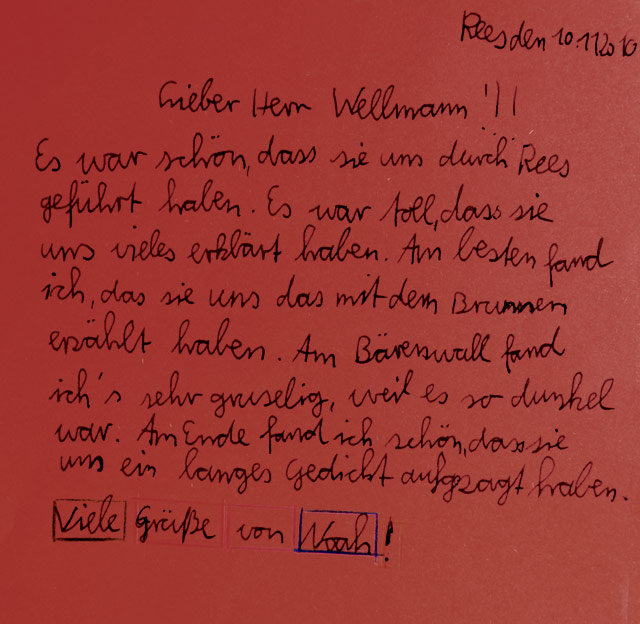 Rees den 10.11 2010
Lieber Herr Wellmann !!!
Es war schön, dass sie uns durch Rees
geführt haben. Es war toll, dass sie
uns vieles erklärt haben. Am besten fand
ich, das sie uns das mit dem Brunnen
erzählt haben. Am Bärenwall fand
ich's sehr gruselig, weil es so dunkel
war. Am Ende fand ich schön, dass sie
uns ein langes Gedicht aufgsagt haben.
Viele Grüße von Noah!